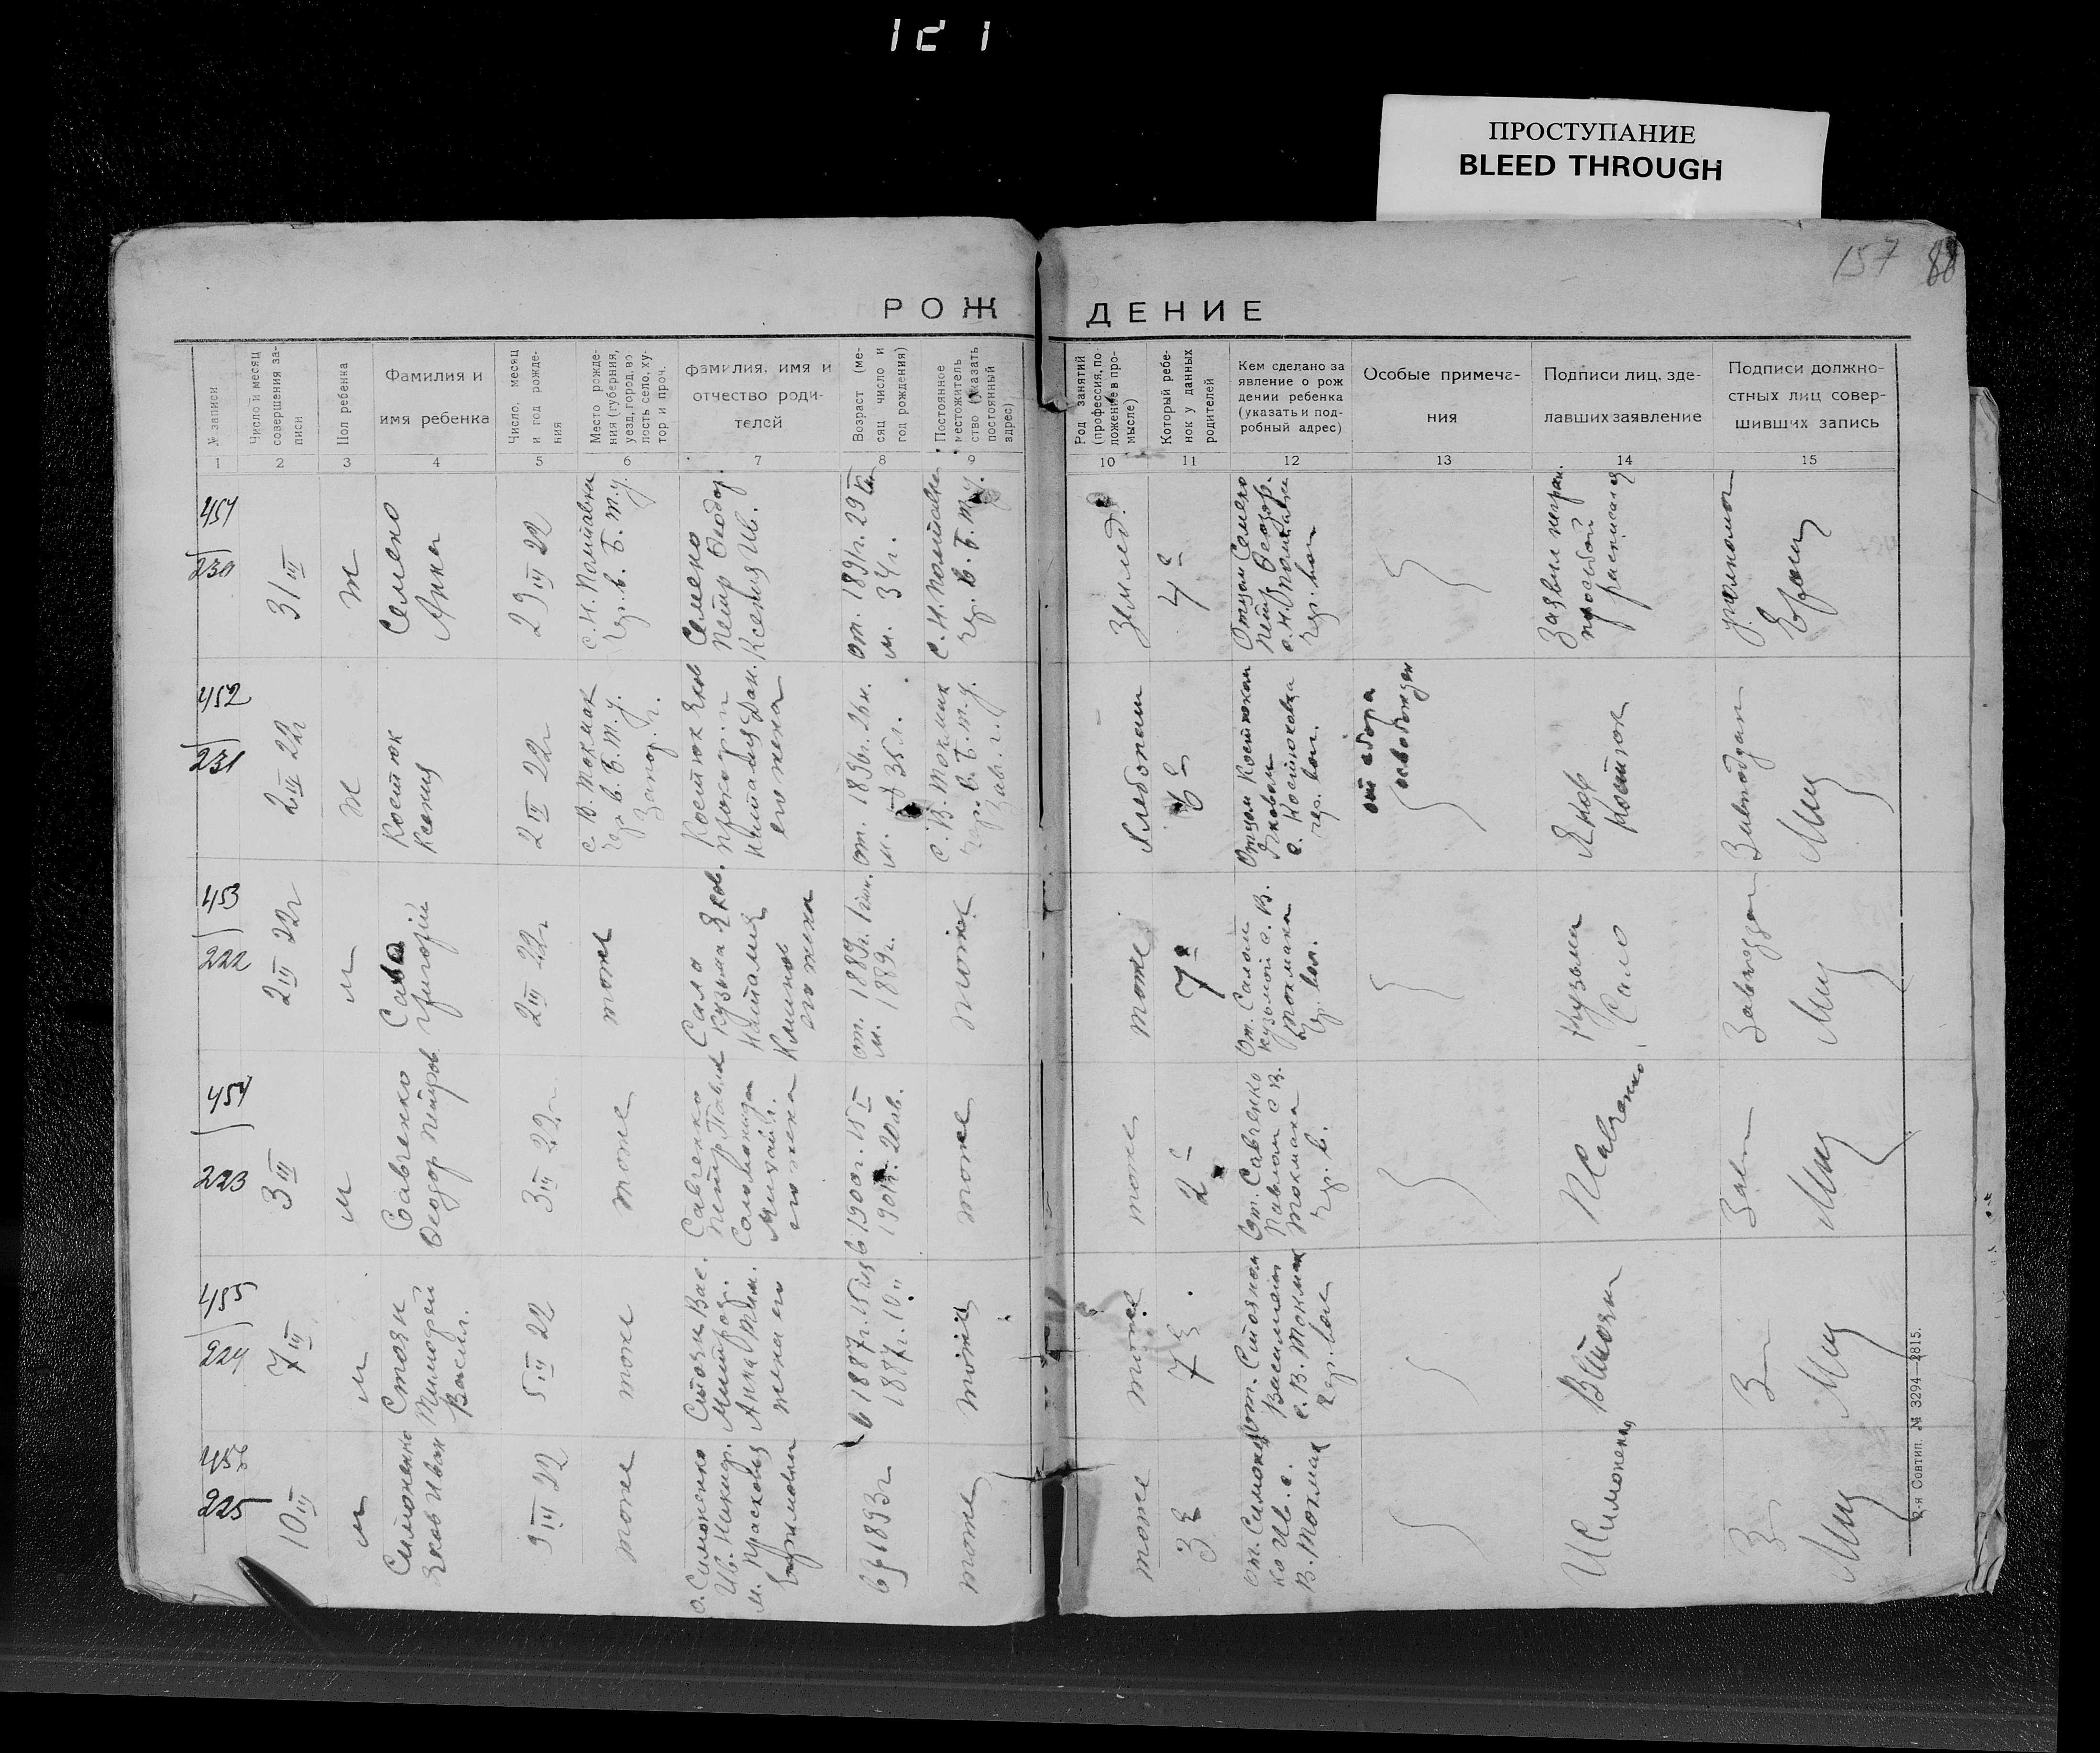 121
ПРОСТУПАНИЕ
BLEED THROUGH
157 88
РОЖДЕНИЕ
№ записи
Число и месяц
совершения за-
писи
Пол ребенка
Фамилия и
имя ребенка
Число, месяц
и год рожде-
ния
Место рожде-
ния (губерния,
уезд, город, во
лость село, ху-
тор и проч.
фамилия, имя и
отчество роди-
телей
Возраст (ме-
сяц число и
год рождения)
Постоянное
местожитель
ство (указать
постоянный
адрес)
Род занятий
(профессия, по
ложение в про-
мысле)
Который ребе-
нок у данных
родителей
Кем сделано за
явление о рож
дении ребенка
(указать и под-
робный адрес)
Особые примеча-
ния
Подписи лиц, зде-
лавших заявление
Подписи должно-
стных лиц совер-
шивших запись
1 2 3 4 5 6 7 8 9 10 11 12 13 14 15
451
230
31 III
ж
Семеко
Анна
29 III 22
с. Н. Полтавка
Чер. в. Б. т. у.
Семеко
Петр Феодор.
Ксения Ив.
от. 1891г.
м. 31 г.
с. Н. Полтавка
Чер. в. Б. т. у.
Землед.
4е
Отцом Семеко
Петр Феодор.
с. Н. Полтавка
Чер. вол
Заявил неграм.
просьбой
расписался
452
231
2 III 22г
ж
Костюк
Ксения
2 III 22г
с. В. Токмак
Чер. в. Б. т. у.
Запор. г.
Костюк Яков
Прокор. и
Наталия Дан.
его жена
от. 1896г. 26 н.
м. 35 л.
с. В. Токмак
Чер. в. Б. т. у.
Зап. г.
Хлебопаш
6е
Отцом Костюком
Яковом
с. Костюковка
Чер. вол.
от сбора
освобожден
Яков
Костюк
453
222
2 III 22г
м
Сало
Григорий
2 III 22г
тоже
Сало
Кузьма Яков.
Наталия
Климов
его жена
от. 1889г.
м. 1889г.
тоже
тоже
7е
От. Салом
Кузьмой с. В.
Токмака
Чер. вол.
Кузьма
Сало
454
223
3 III
м
Савченко
Феодор Петров
3 III 22г
тоже
Савченко
Петр Павлов
Соломонида
Михайл.
его жена
1900г. 15 I
1901г. 20 ав.
тоже
тоже
2е
От. Савченко
Павлом с. В.
Токмака
Чер. в.
П Савченко
455
224
7 III
м
Стоян
Тимофей
Васил.
5 III 22
тоже
Стоян Вас.
Митроф.
Анна Тим.
жена его
1887г. 15
1887г. 10
тоже
тоже
7е
От. Стояном
Василием
с. В. Токмак
Чер. вол
В Стоян
456
225
10 III
м
Симоненко
Яков Иван
9 III 22
тоже
о. Симоненко
Ив. Никиф.
м. Прасковья
1893г
тоже
тоже
3е
От. Симонен
ко Ив. с.
В. Токмак
И Симоненко
2-я Совтип. № 3294—2815.